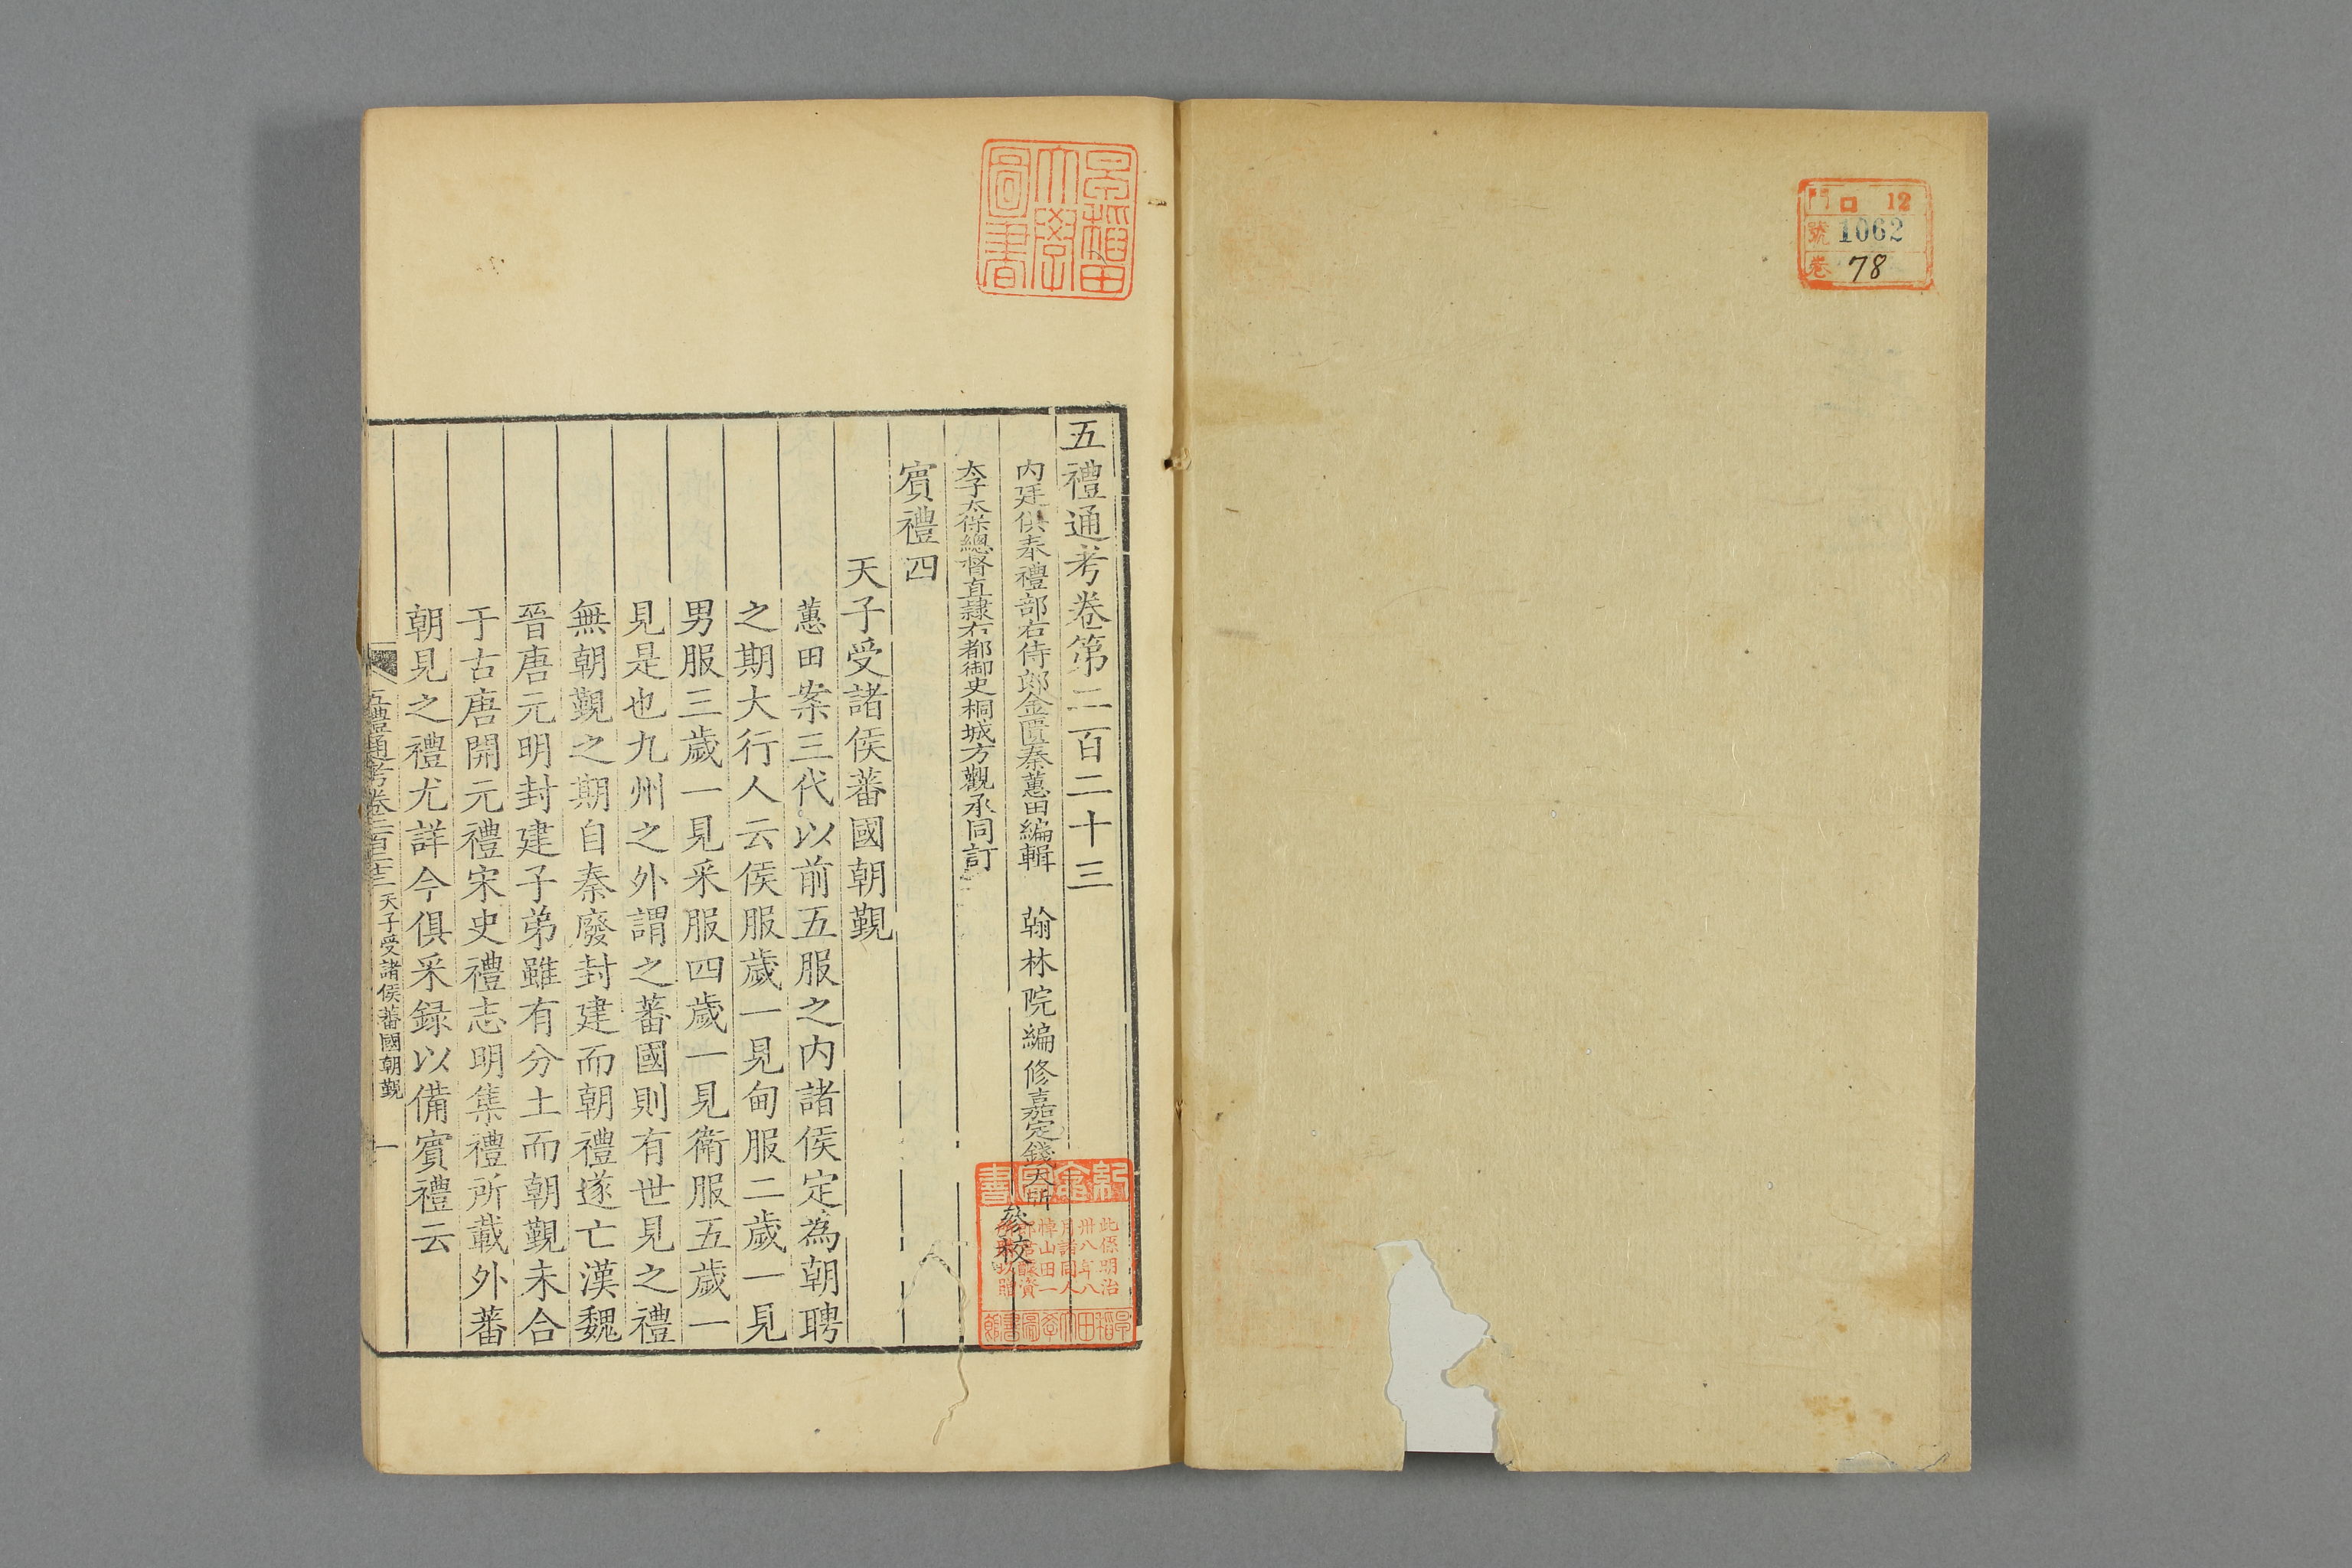 門 口 12
號 1062
卷 78
早稲田大學圖書
五禮通考卷第二百二十三
内廷供奉禮部右侍郎金匱秦蕙田編輯 翰林院編修嘉定錢大昕
參校
太子太保總督直隸右都御史桐城方觀承同訂
賓禮四
天子受諸侯蕃國朝覲
蕙田案三代以前五服之内諸侯定為朝聘
之期大行人云侯服歲一見甸服二歲一見
男服三歲一見采服四歲一見衛服五歲一
見是也九州之外謂之蕃國則有世見之禮
無朝覲之期自秦廢封建而朝禮遂亡漢魏
晉唐元明封建子弟雖有分土而朝覲未合
于古唐開元禮宋史禮志明集禮所載外蕃
朝見之禮尤詳今俱采録以備賓禮云
五禮通考卷二百二十三 天子受諸侯蕃國朝覲 一
紀念圖書
此係明治
卅八年八
月諸同人
悼山田一
早稲田大學圖書館